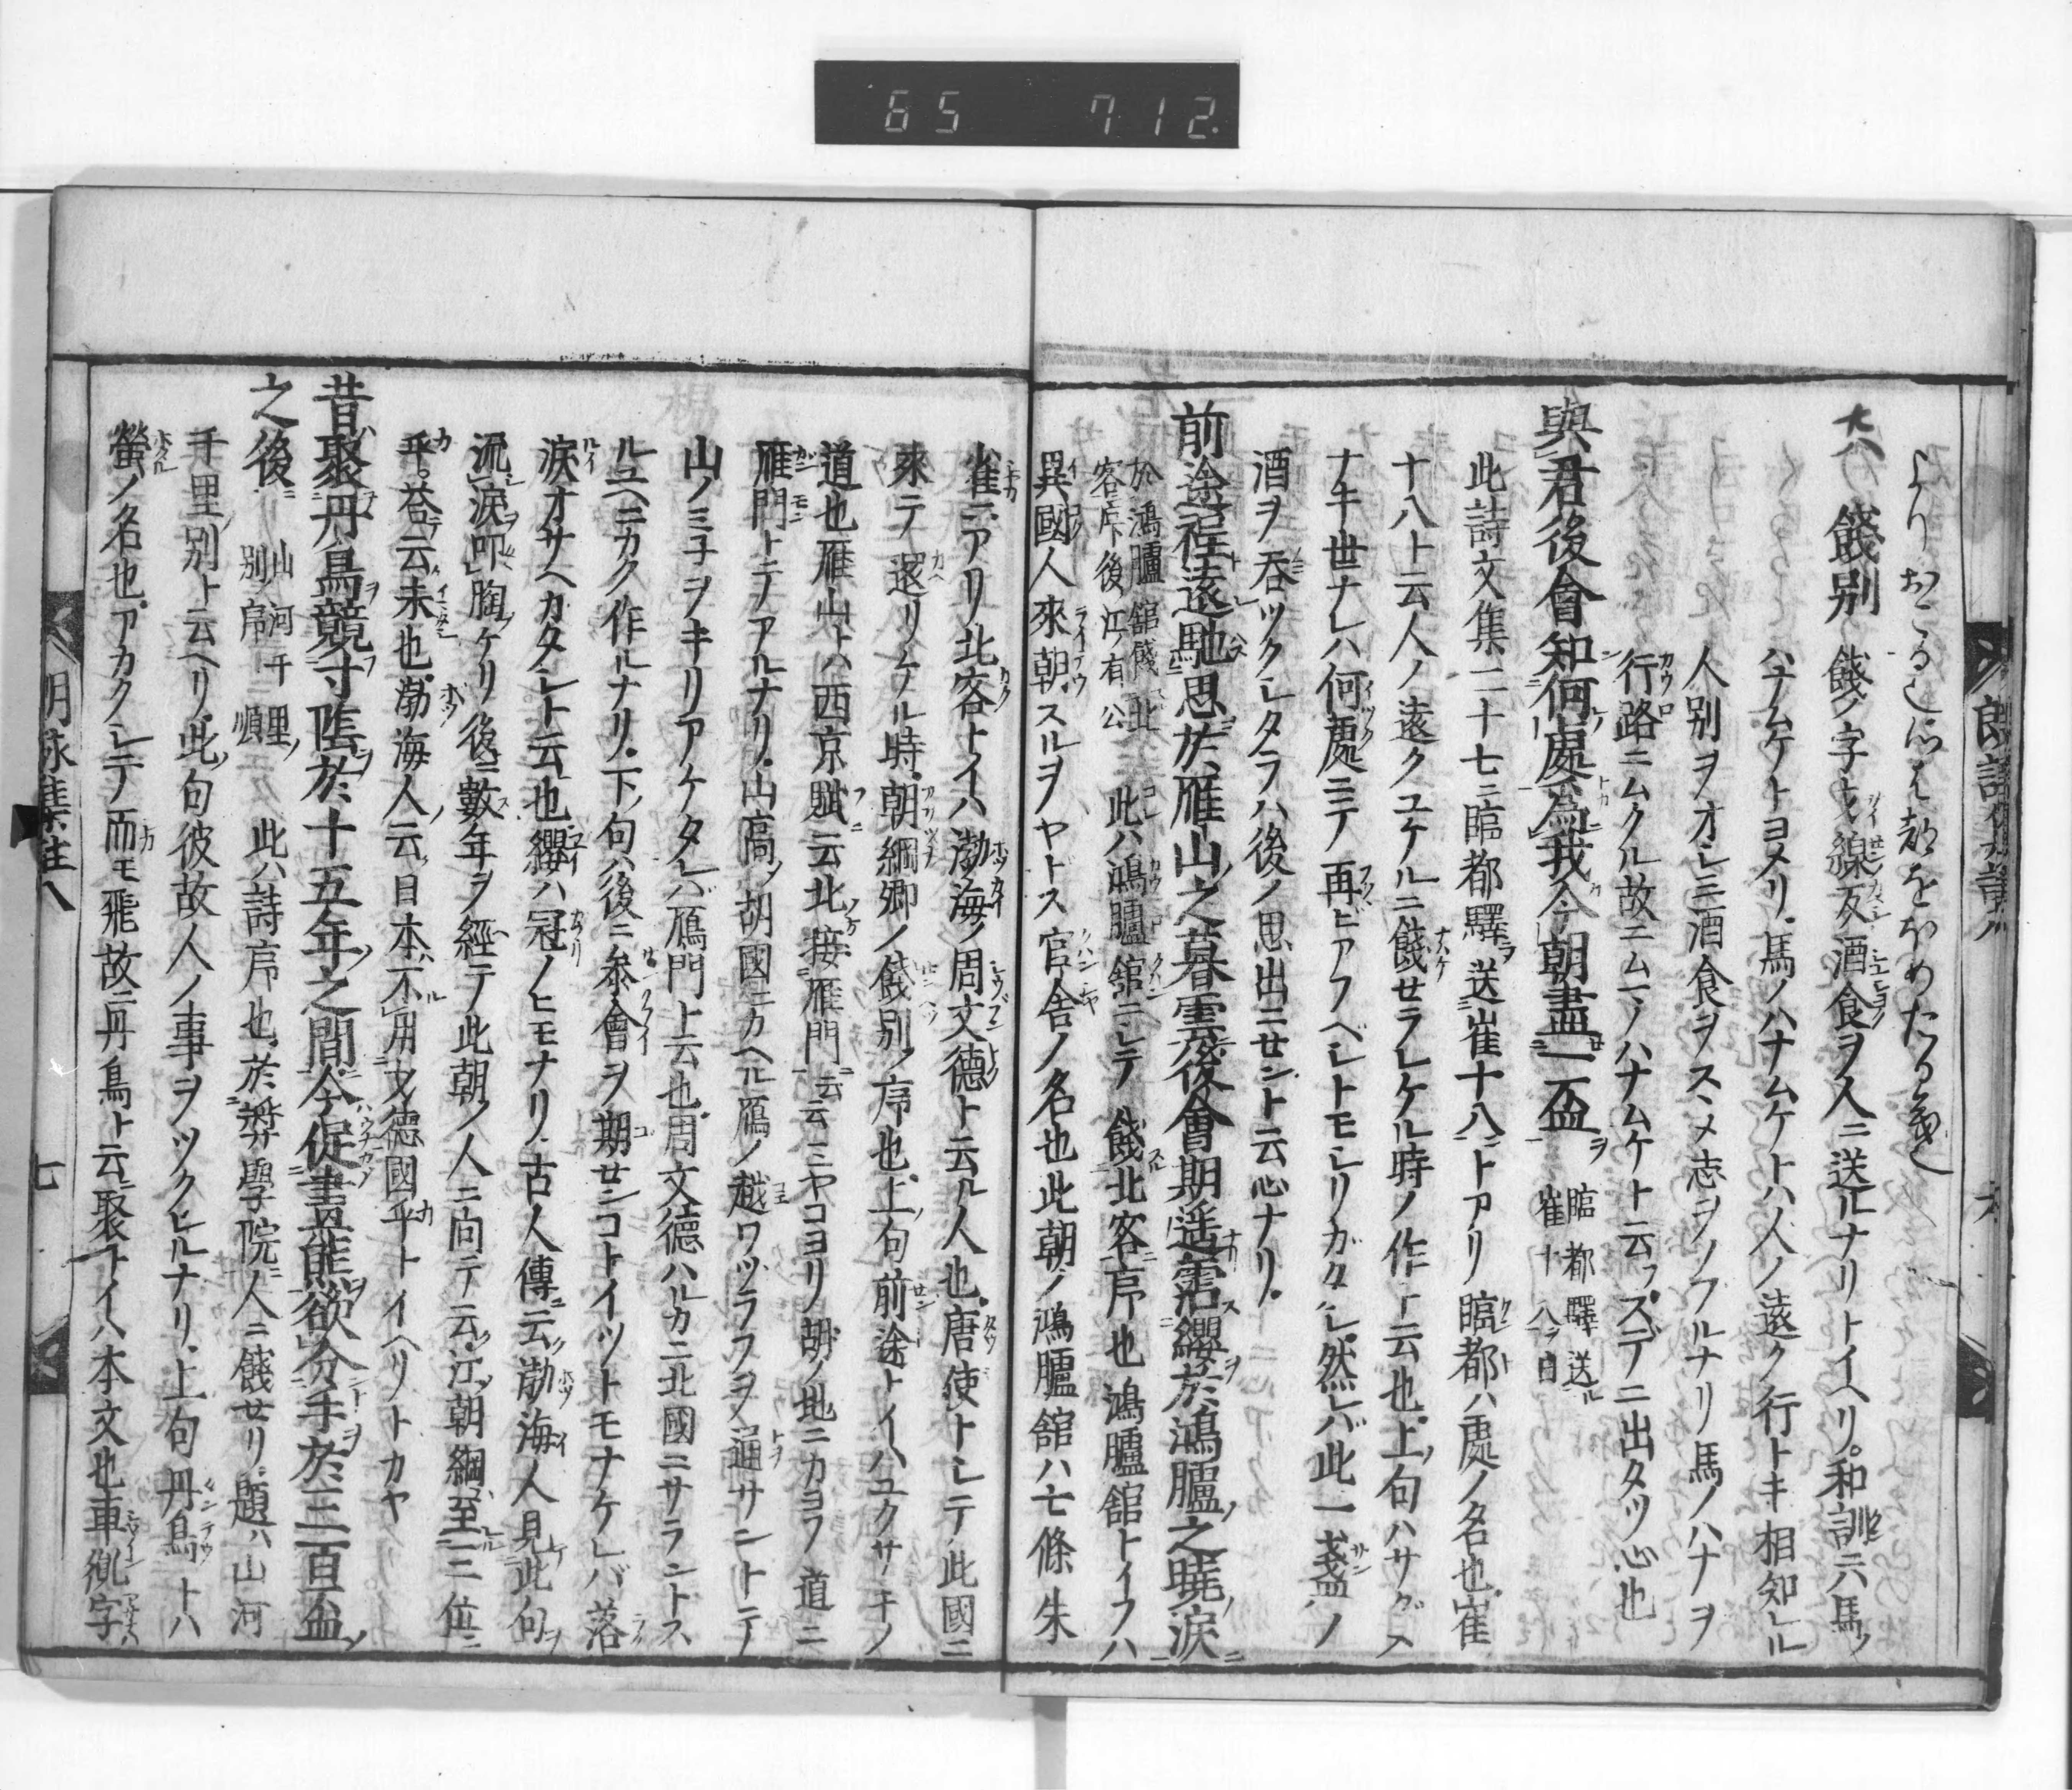 65 712.
よりおこる也心は都をほめたる義也
六八 餞別 餞ノ字ハ線反酒食ヲ人ニ送ルナリトイヘリ。和訓ニハ馬ノ
ハナムケトヨメリ。馬ノハナムケトハ人ノ遠ク行トキ相知レル
人別ヲオシミ酒食ヲスヽメ志ヲノフルナリ馬ノハナヲ
行路ニムクル故ニムマノハナムケト云フ。スデニ出タツ心也
與君後會知何處為我今朝盡一盃 臨都驛送ル崔十八ヲ白
此詩文集二十七ニ臨都驛送崔十八ニトアリ臨都ハ處ノ名也。崔
十八ト云人ノ遠クユケルニ餞セラレケル時ノ作ト云也。上ノ句ハサダメ
ナキ世ナレハ何處ニテ再ビアフベシトモシリガタシ。然レバ此一盞ノ
酒ヲ呑ツクシタラハ後ノ思出ニセント云心ナリ。
前途程遠馳思於雁山之暮雲後會期遥霑纓於鴻臚之曉涙
於鴻臚舘餞北客序後江有公 此ハ鴻臚舘ニシテ餞北客序也鴻臚舘トイフハ
異國人來朝スルヲヤドス官舎ノ名也此朝ノ鴻臚舘ハ七條朱
雀ニアリ。北客トイハ渤海ノ周文德ト云ル人也。唐使トシテ此國ニ
來テ還リケル時。朝綱卿ノ餞別ノ序也。上ノ句前途トイハユクサキノ
道也雁山トハ西京賦ニ云北接雁門ニ云云ミヤコヨリ胡ノ地ニカヨフ道ニ
雁門トニテアルナリ。山高ノ胡國ニカヘル雁ノ越ワヅラフヲ通サントテ
山ノミ子ヲキリアケタレバ雁門上云也。周文德ハルカニ北國ニサラントス
ルユヘニカク作ルナリ。下ノ句ハ後ニ參會ヲ期センコトイツトモナケレバ落
涙オサヘカタシト云也。纓ハ冠ノヒモナリ。古人傳云渤海人見此句ヲ
流涙叩胸ケリ後ニ數年ヲ經テ此朝ノ人ニ向テ云。江朝綱至三位ニ
乎。荅云未也。渤海人云日本ハ不用文德國乎トイヘリトカヤ
昔聚丹鳥競寸陰於十五年之間今促畫熊欲分手於三百盃
之後 山河千里別序順 此ハ詩序也。於弉學院人ニ餞セリ。題ハ山河
千里別ト云ヘリ。此ノ句彼故人ノ事ヲツクレルナリ。上句丹鳥トハ
螢ノ名也。アカクシテ而モ飛故ニ丹鳥ト云聚トイハ本文也車胤字
朗詠集註八
六
朗詠集註八
七